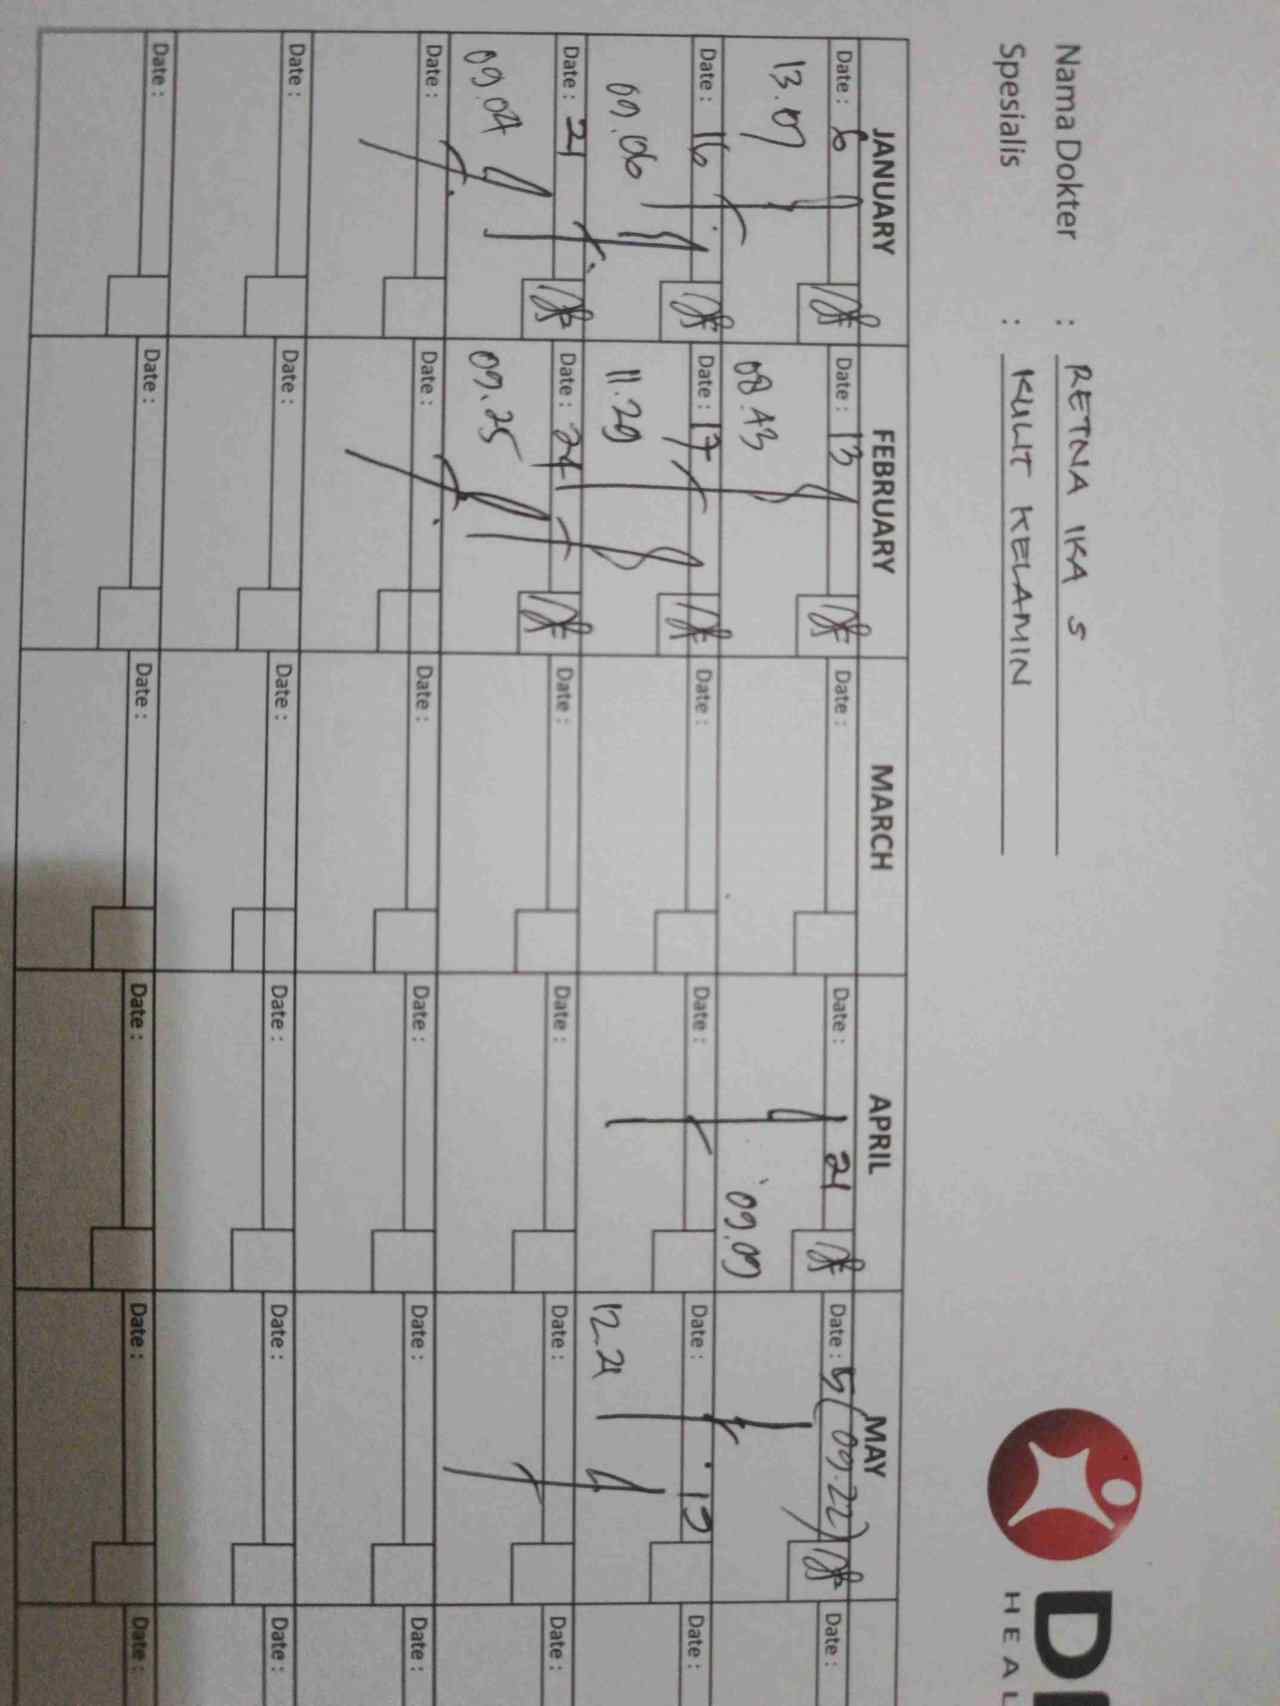 Nama Dokter : RETNA IKA S
Spesialis : KULIT KELAMIN
HEAL
JANUARY FEBRUARY MARCH APRIL MAY
Date: 6 Date: 13 Date: Date: 21 Date: 5 (09.22) Date:
13.07 08.43 09.09
Date: 16 Date: 17 Date: Date: Date: 19 Date:
09.06 11.29 12.21
Date: 21 Date: 24 Date: Date: Date: Date:
09.04 09.25
Date: Date: Date: Date: Date: Date:
Date: Date: Date: Date: Date: Date:
Date: Date: Date: Date: Date: Date: